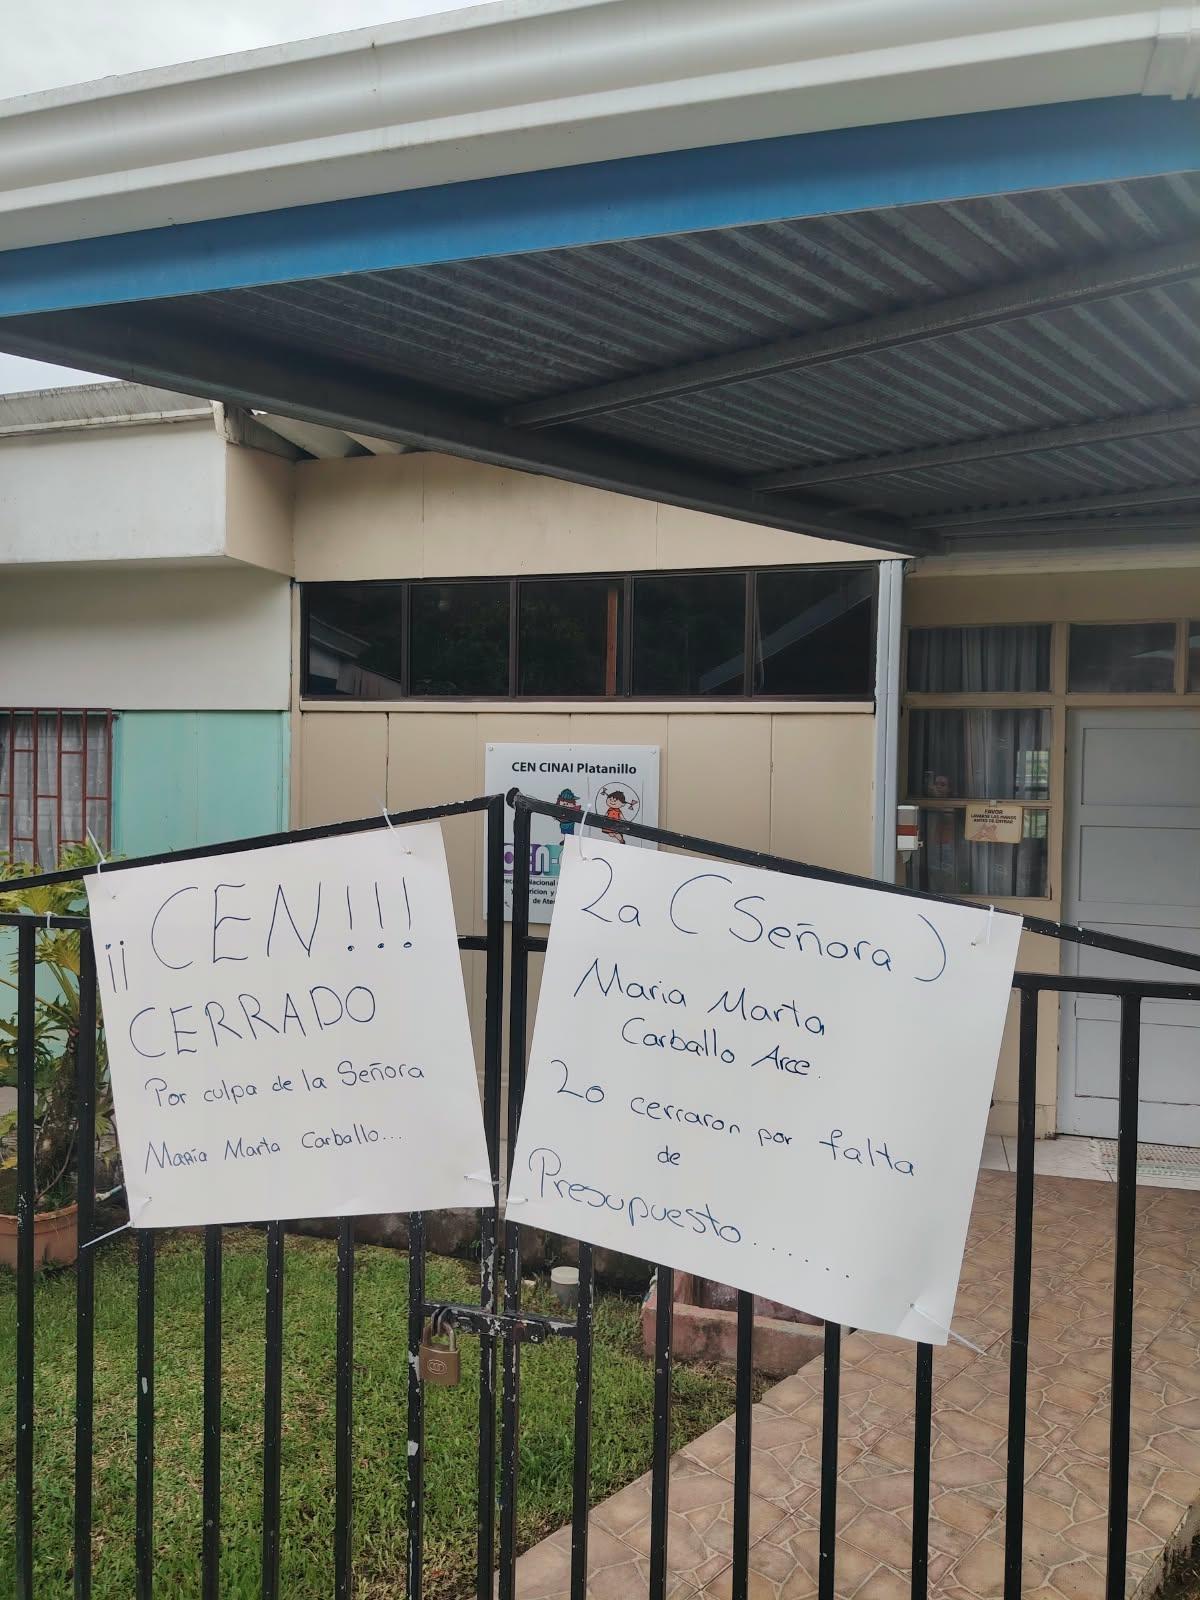 CEN CINAI Platanillo
CEN-
Nacional
de Ate
FAVOR
LAVARSE LAS MANOS
ANTES DE ENTRAR
¡¡CEN!!!
CERRADO
Por culpa de la Señora
María Marta Carballo...
La (Señora)
Maria Marta
Carballo Arce.
Lo cerraron por falta
de
Presupuesto......